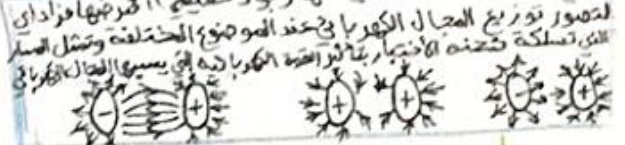 افترضها فراداي
لتصور توزيع المجال الكهربائي عند الموضوع المختلفة وتمثل المسار
الذي تسلكة شحنه الأختبار بتأثير القوة الكهربائيه التي يسببها المجال الكهربائي
- + + + - +